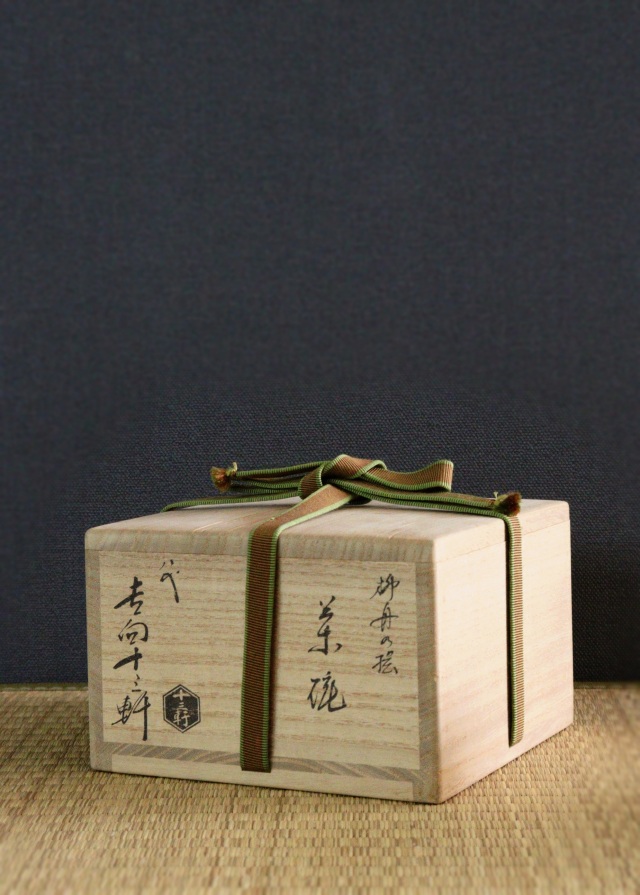 牡丹の絵
茶碗
八代
吉向十三軒
十三軒